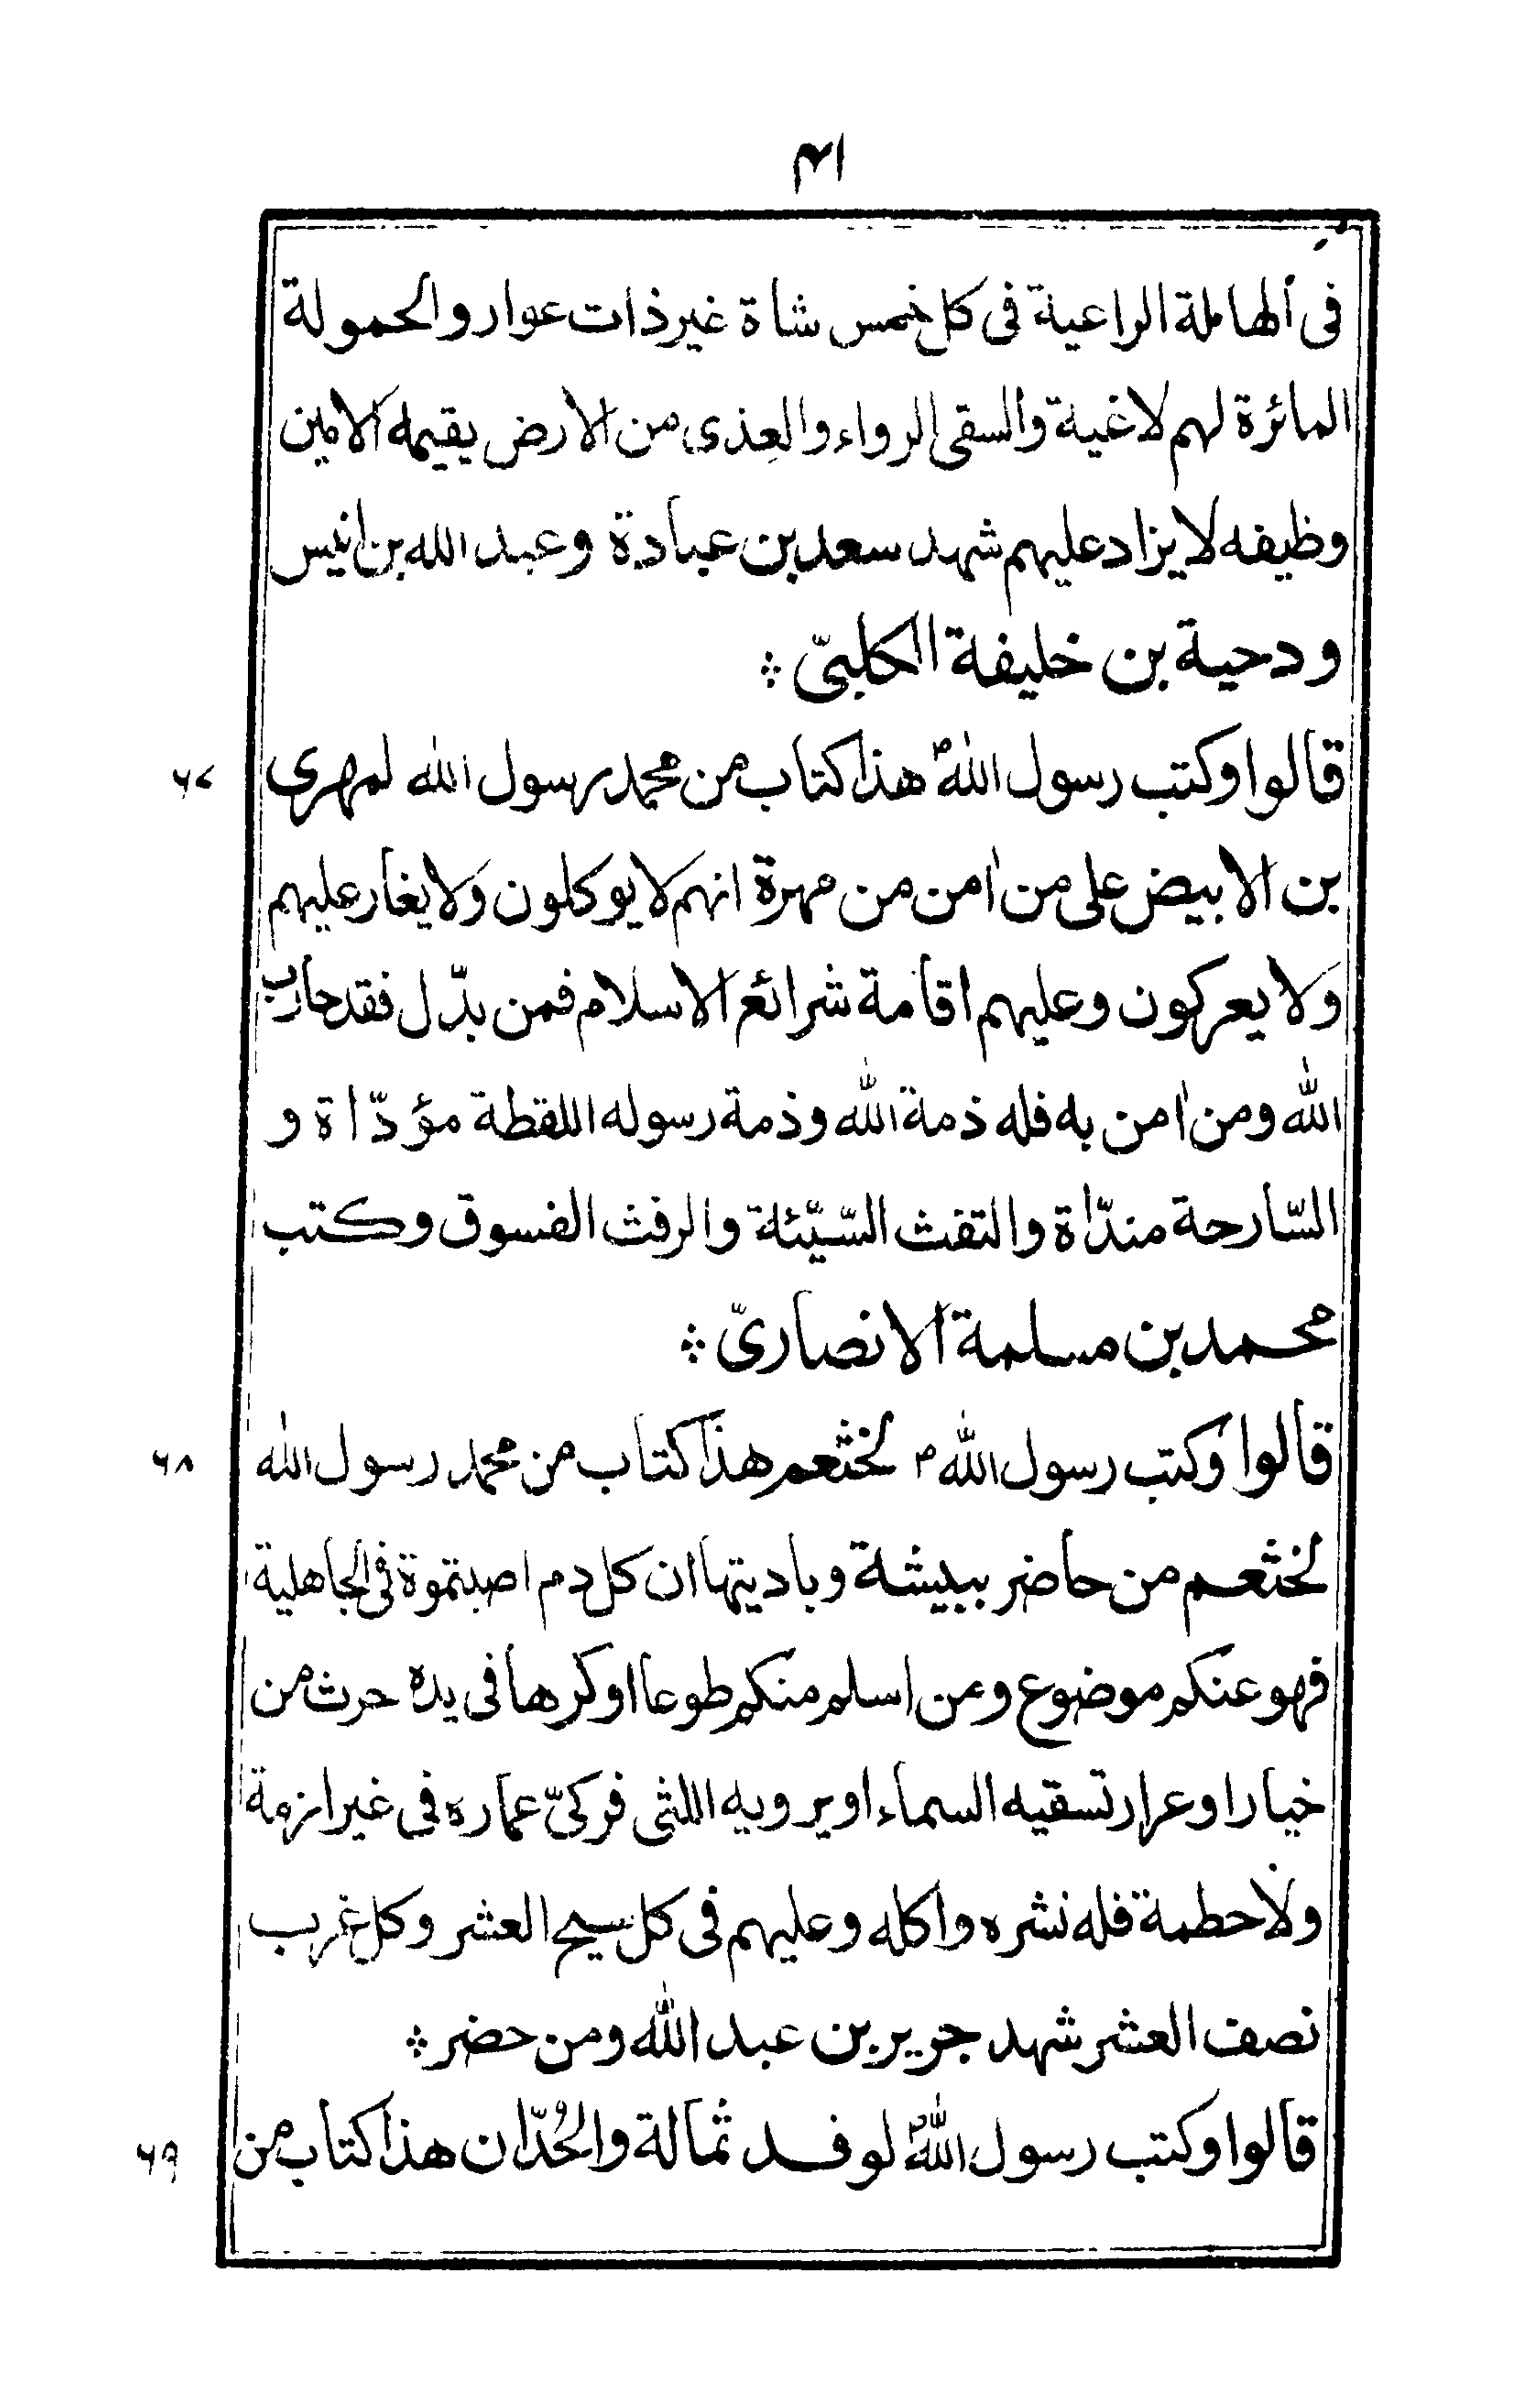 ۴۱
فى الهاملة الراعية فى كل خمس شاة غير ذات عوار والحمولة
المائرة لهم لاغية والسقى الرواء والعِذى من الارض يقيمه الامين
وظيفه لا يزاد عليهم شهد سعد بن عبادة وعبد الله بن انيس
ودحية بن خليفة الكلبىّ ؞
قالوا وكتب رسول اللهؐ هذا كتاب من محمد رسول الله لمهرى ۶۷
بن الابيض على من اٰمن من مهرة انهم لا يوكلون ولا يغار عليهم
ولا يعركون وعليهم اقامة شرائع الاسلام فمن بدّل فقد حارب
الله ومن اٰمن به فله ذمة الله وذمة رسوله اللقطة مؤدّاة و
السّارحة مندّاة والتفث السّيّئة والرفث الفسوق وكتب
محمد بن مسلمة الانصارىّ ؞
قالوا وكتب رسول الله م لخثعم هذا كتاب من محمد رسول الله ۶۸
لخثعم من حاضر ببيشة وباديتها ان كل دم اصبتموة فى الجاهلية
فهو عنكم موضوع ومن اسلم منكم طوعا او كرها فى يده حرث من
خبارا وعرار تسقيه السماء او يرويه اللثى فركىّ عماره فى غير ازمة
ولا حطمة فله نشره واكله وعليهم فى كل سيح العشر وكل غرب
نصف العشر شهد جرير بن عبد الله ومن حضر ؞
قالوا وكتب رسول اللهؐ لوفد ثمالة والحُدّان هذا كتاب من ۶۹